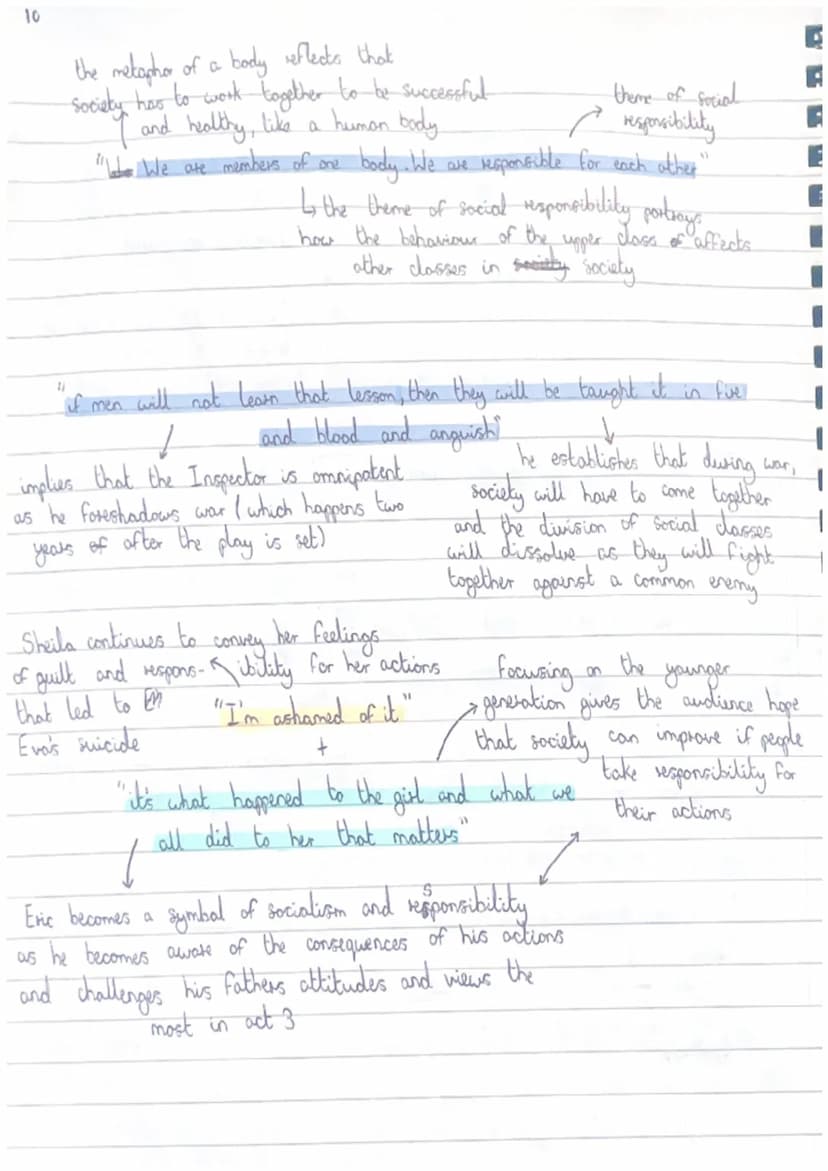 10
the metaphor of a body reflects that
society has to work together to be successful
and healthy, like a human body
theme of social
responsibility
"We are members of one body. We are responsible for each other"
↳ the theme of social responsibility portrays
how the behaviour of the upper class affects
other classes in society
"if men will not learn that lesson, then they will be taught it in fire
and blood and anguish"
implies that the Inspector is omnipotent
as he foreshadows war (which happens two
years after the play is set)
he establishes that during war,
society will have to come together
and the division of social classes
will dissolve as they will fight
together against a common enemy
Sheila continues to convey her feelings
of guilt and respons-ibility for her actions
that led to
Eva's suicide
"I'm ashamed of it"
+
focusing on the younger
generation gives the audience hope
that society can improve if people
take responsibility for
their actions
"it's what happened to the girl and what we
all did to her that matters"
Eric becomes a symbol of socialism and responsibility
as he becomes aware of the consequences of his actions
and challenges his fathers attitudes and views the
most in act 3